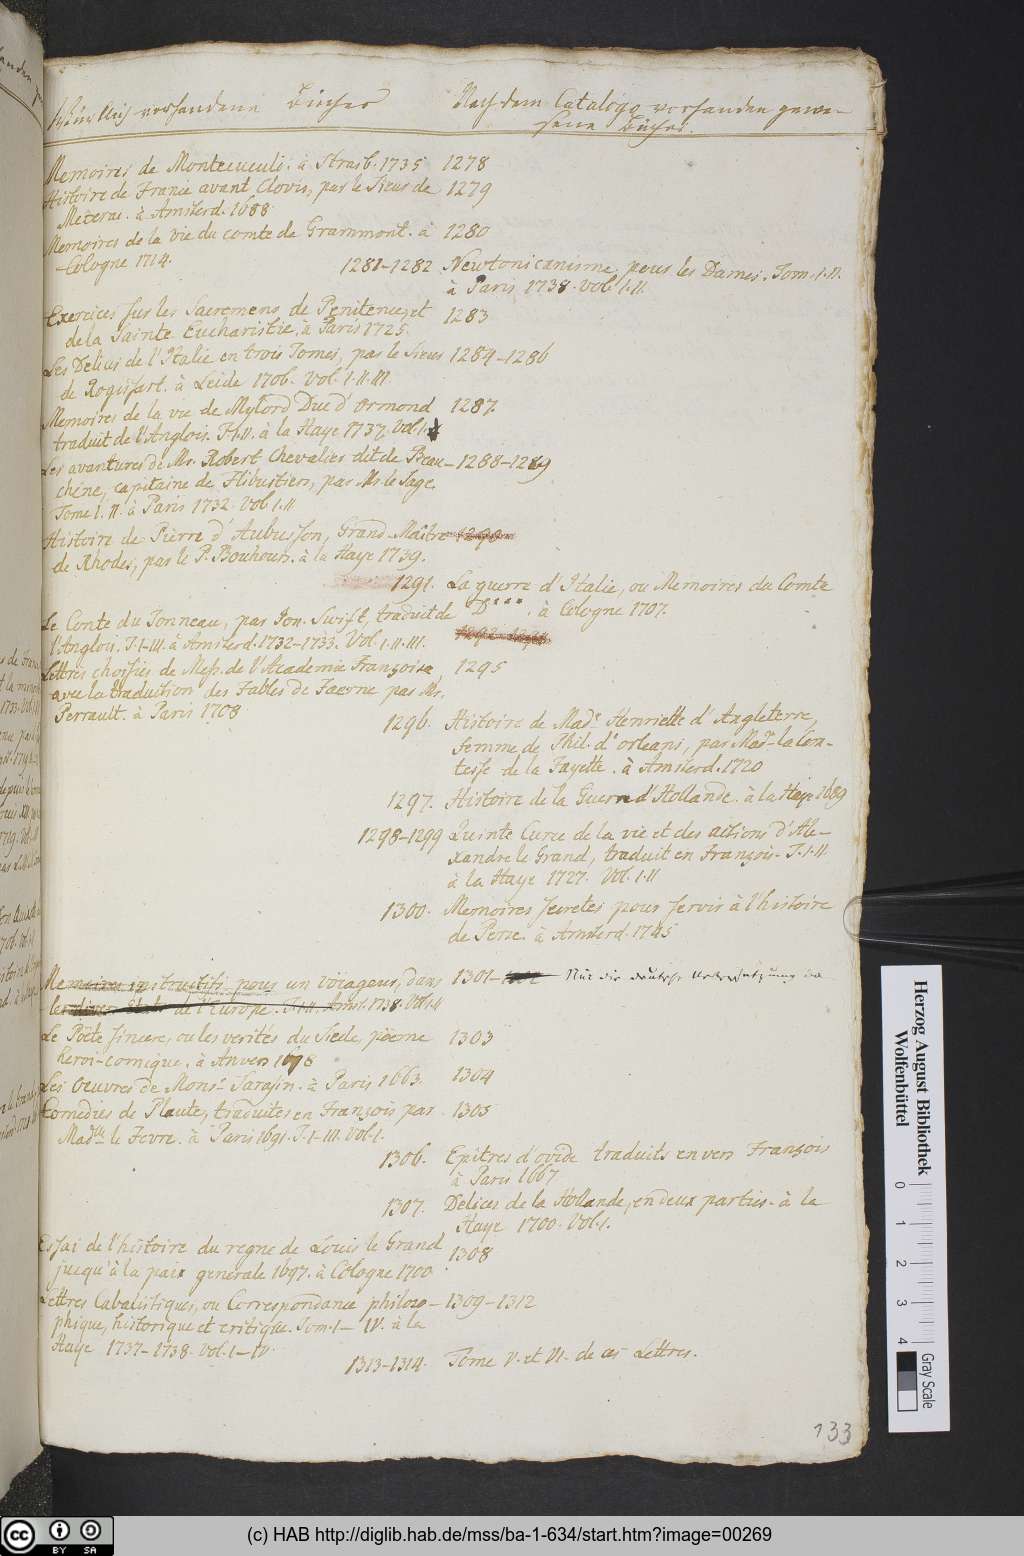 Würklich vorhandene Bücher
Nach dem Catalogo vorhanden gewe-
sene Bücher.
Memoires de Montecuculi. à Strasb. 1735 1278
Histoire de France avant Clovis, par le Sieur de 1279
Mezerai. à Amsterd. 1688
Memoires de la vie du comte de Grammont. à 1280
Cologne 1714.
1281-1282 Newtonicanisme, pour les Dames. Tom. I. II.
à Paris 1738. vol. I. II.
Exercices sur les Sacremens de Penitence, et 1283
de la Sainte Eucharistie. à Paris 1725.
Les Delices de l'Italie en trois Tomes, par le Sieur 1284-1286
de Rogissart. à Leide 1706. Vol. I. II. III.
Memoires de la vie de Mylord Duc d'Ormond 1287.
traduit de l'Anglois. T. I. II. à la Haye 1737. Vol. I.
Les avantures de Mr. Robert Chevalier dit de Beau- 1288-1289
chene, capitaine de Flibustiers, par Mr. le Sage.
Tome I. II. à Paris 1732. Vol. I. II
Histoire de Pierre d'Aubusson, Grand-Maitre 1290
de Rhodes, par le P. Bouhours. à la Haye 1739.
1291. La guerre d'Italie, ou Memoires du Comte
D***. à Cologne 1707.
Le Conte du Tonneau, par Jon. Swift, traduit de
l'Anglois. T. I-III. à Amsterd. 1732-1733. Vol. I. II. III.
1292-1294
Lettres choisies de Mess. de l'Academie Françoise 1295
avec la traduction des Fables de Faerne par Mr.
Perrault. à Paris 1708
1296. Histoire de Made Henriette d'Angleterre,
femme de Phil. d'orleans, par Made la Com-
tesse de la Fayette. à Amsterd. 1720
1297. Histoire de la Guerre d'Hollande. à la Haye 1689
1298-1299 Quinte Curce de la vie et des actions d'Ale-
xandre le Grand, traduit en François. T. I. II
à la Haye 1727. Vol. I. II
1300. Memoires secretes pour servir à l'histoire
de Perse. à Amsterd. 1745
Memoires instructifs pour un voiageur, dans 1301- Nur die deutsche Uebersetzung da
les divers Etats de l'Europe. T. I. II. Amst. 1738. Vol.
Le Poëte sincere, ou les verités du Siecle, pöeme 1303
heroi-comique. à Anvers 1698
Les Oeuvres de Monsr Sarasin. à Paris 1663. 1304
Comedies de Plaute, traduites en François par 1305
Madlle le Fevre. à Paris 1691. T. I-III. Vol. I.
1306. Epitres d'ovide traduits en vers François
à Paris 1667
1307. Delices de la Hollande, en deux parties. à la
Haye 1700. Vol. I.
Essai de l'histoire du regne de Louis le Grand 1308
jusqu'à la paix generale 1697. à Cologne 1700
Lettres Cabalistiques, ou Correspondance philoso- 1309-1312
phique, historique et critique. Tom. I-IV. à la
Haye 1737-1738. Vol. I-IV.
1313-1314. Tome V. et VI. de ces Lettres.
133
Herzog August Bibliothek
Wolfenbüttel
0 1 2 3 4
Gray Scale
cc BY SA
(c) HAB http://diglib.hab.de/mss/ba-1-634/start.htm?image=00269